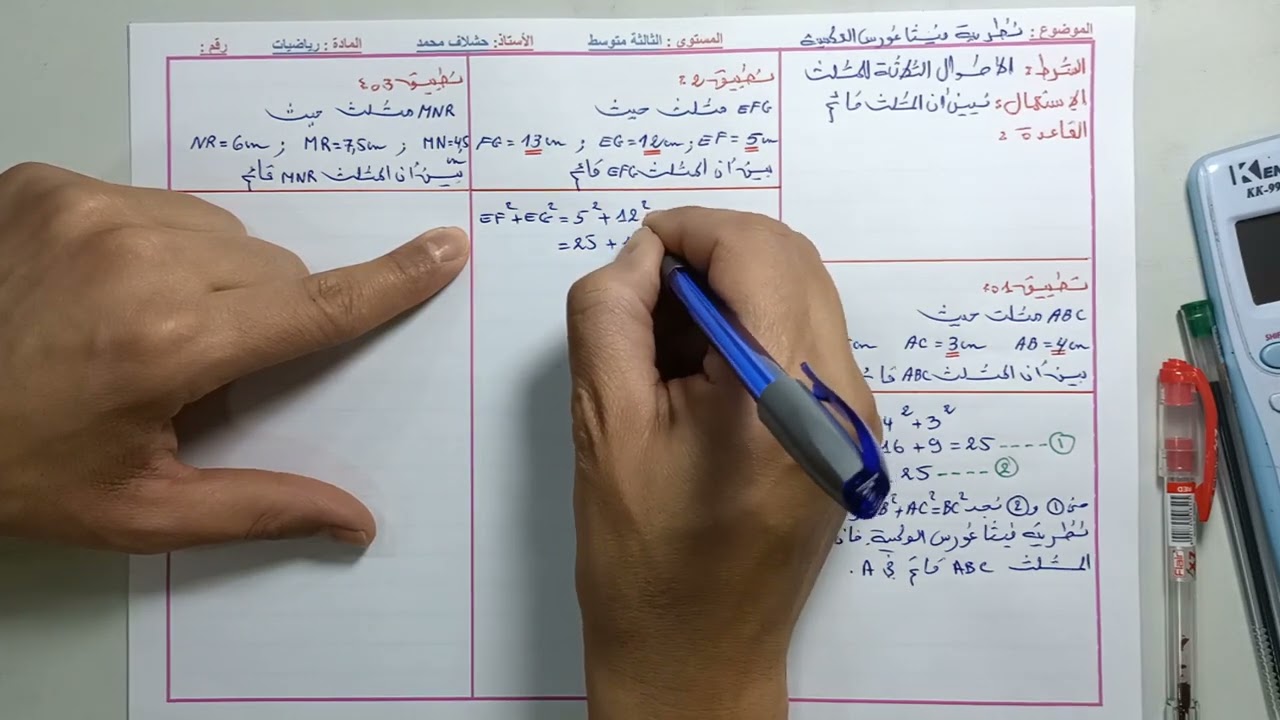 الموضوع : نظرية فيثاغورس العكسية
المستوى : الثالثة متوسط
الأستاذ: حشلاف محمد
المادة : رياضيات
رقم :
الشرط : الأطوال الثلاثة للمثلث
الاستعمال : نبين أن المثلث قائم
القاعدة :
تطبيق 01:
ABC مثلث حيث
AB = 4cm AC = 3cm cm
بين أن المثلث ABC
4² + 3²
16 + 9 = 25 ---- ①
25 ---- ②
من ① و ② نجد B² + AC² = BC²
نظرية فيثاغورس العكسية
المثلث ABC قائم في A .
تطبيق 2:
EFG مثلث حيث
EF = 5cm ; EG = 12cm ; FG = 13cm
بين أن المثلث EFG قائم
EF² + EG² = 5² + 12²
= 25 +
تطبيق 03:
MNR مثلث حيث
MN = 4,5 cm ; MR = 7,5cm ; NR = 6cm
بين أن المثلث MNR قائم
KK-99
RED
Flair